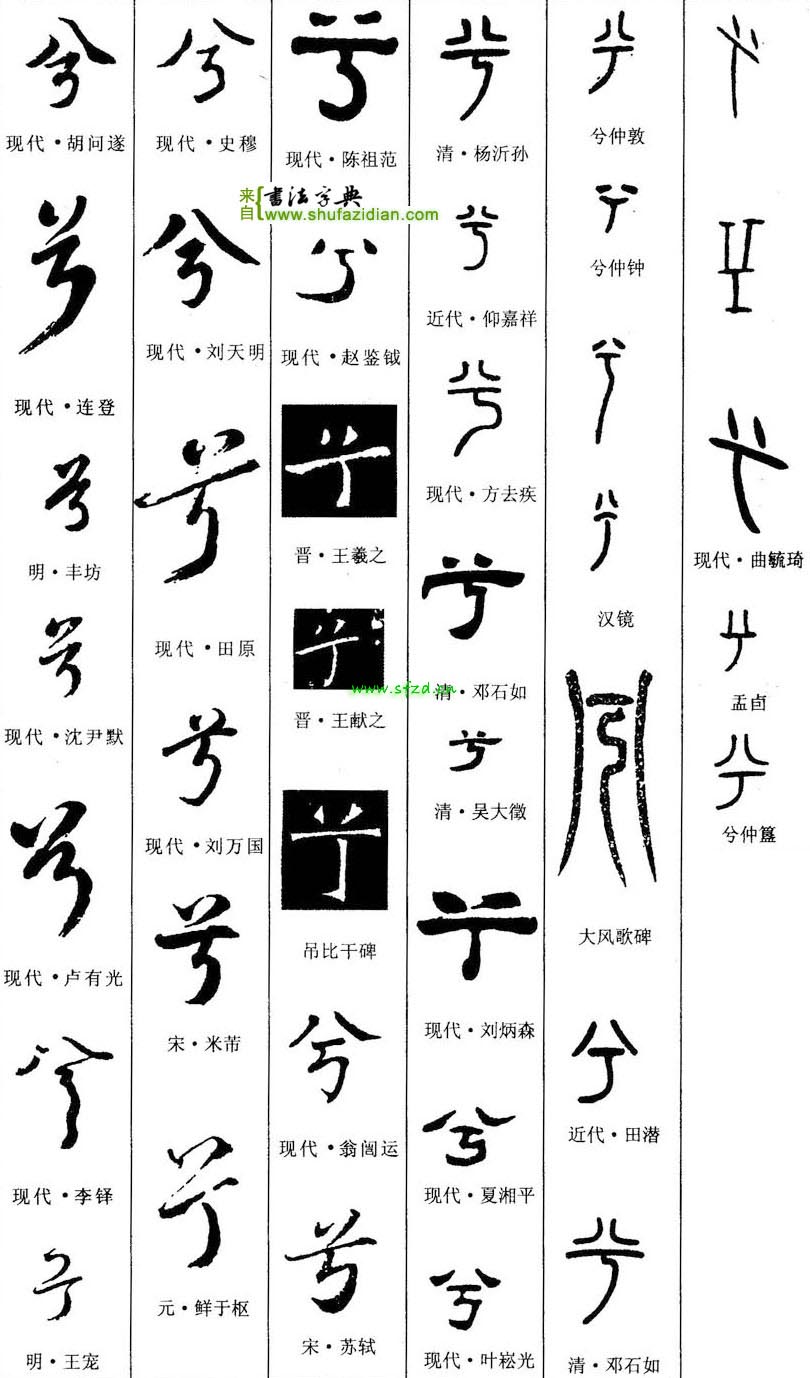 兮
兮
兮
现代·曲毓琦
兮
盂卣
兮
兮仲簋
兮
兮仲敦
兮
兮仲钟
兮
兮
汉镜
兮
大风歌碑
兮
近代·田潜
兮
清·邓石如
兮
清·杨沂孙
兮
近代·仰嘉祥
兮
现代·方去疾
兮
清·邓石如
兮
清·吴大徵
兮
现代·刘炳森
兮
现代·夏湘平
兮
现代·叶崧光
兮
现代·陈祖范
来自{書法字典
www.shufazidian.com
兮
现代·赵鉴钺
兮
晋·王羲之
兮
www.sfzd.cn
晋·王献之
兮
吊比干碑
兮
现代·翁闿运
兮
宋·苏轼
兮
现代·史穆
兮
现代·刘天明
兮
现代·田原
兮
现代·刘万国
兮
宋·米芾
兮
元·鲜于枢
兮
现代·胡问遂
兮
现代·连登
兮
明·丰坊
兮
现代·沈尹默
兮
现代·卢有光
兮
现代·李铎
兮
明·王宠